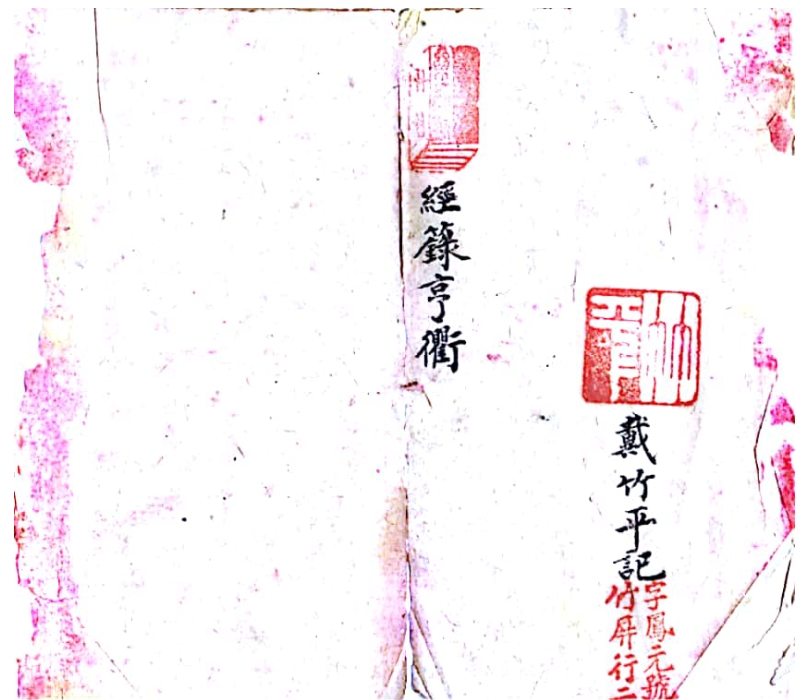 戴竹平記
字鳳元號
竹屏行二
經籙亨衢